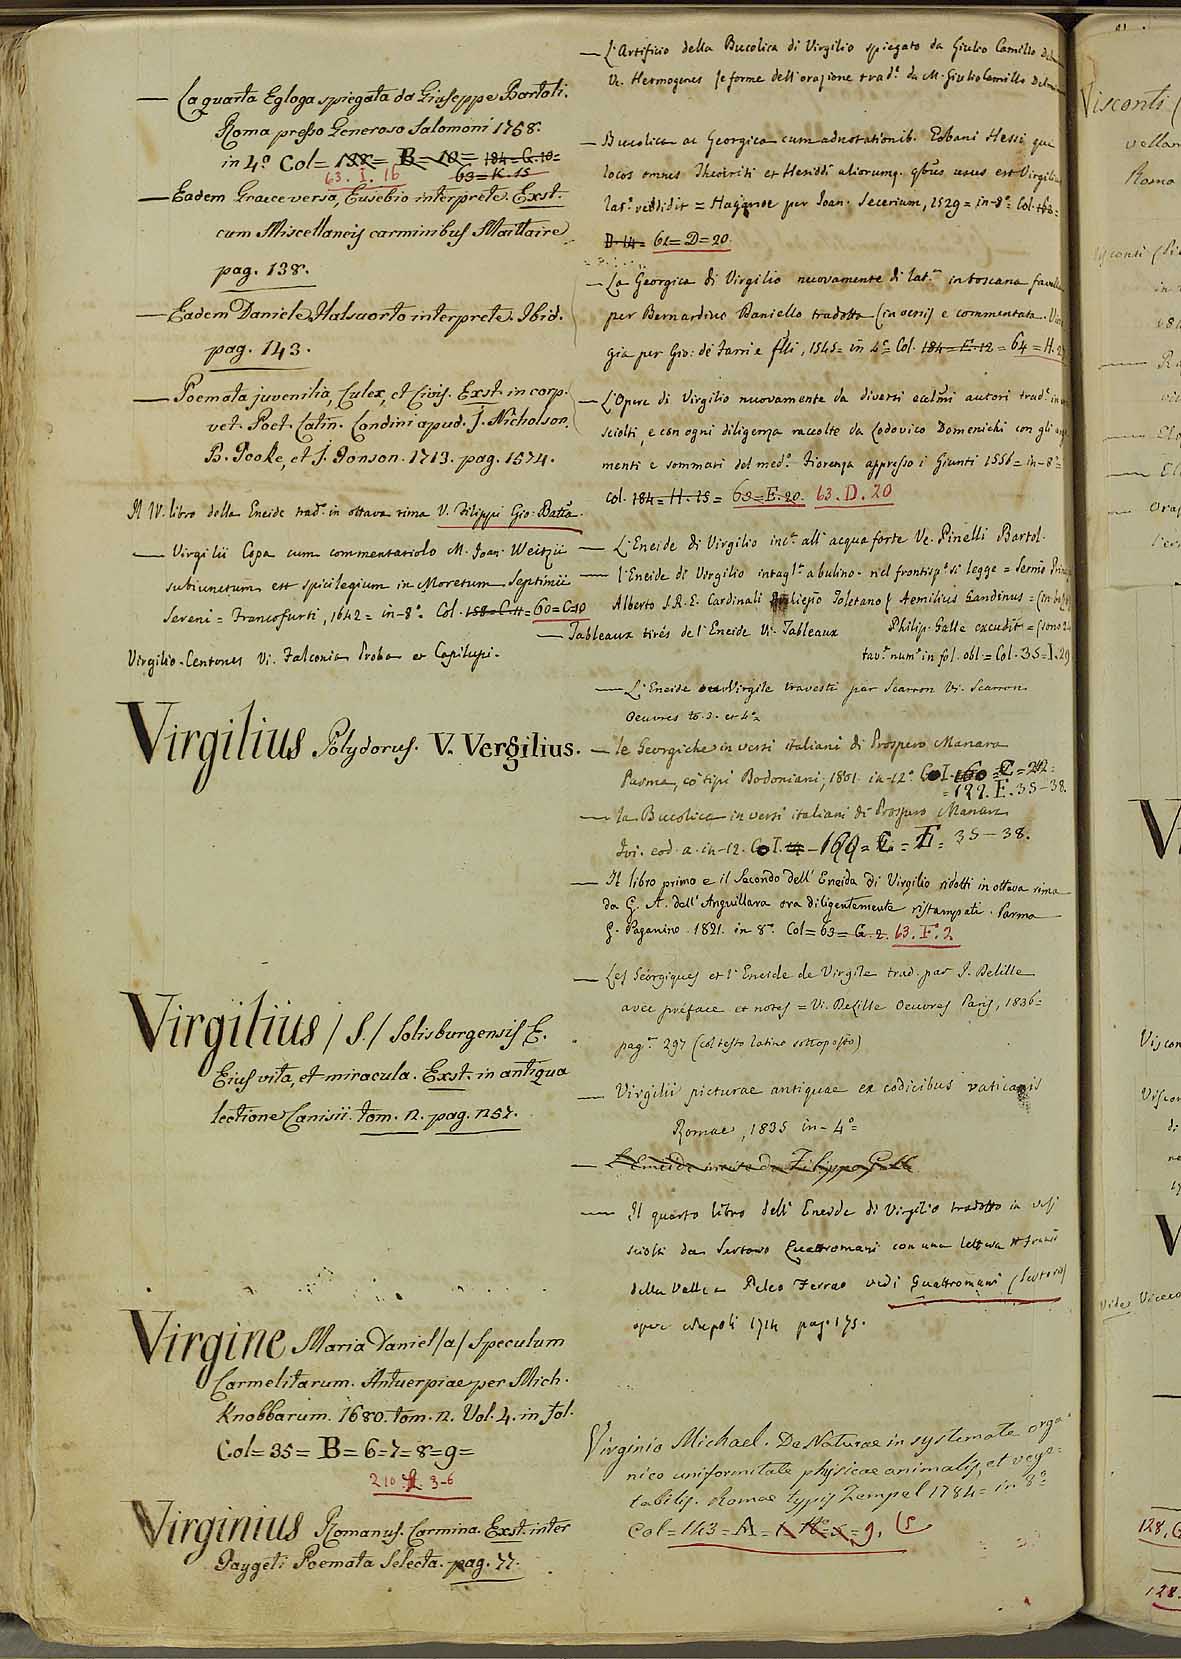 — La quarta Egloga spiegata da Giuseppe Bartoli.
Roma presso Generoso Salomoni 1758.
in 4.° Col = 188 = B = 10 = 184 = G. 10 =
63. I. 16 63 = K. 15
— Eadem Graece versa, Eusebio interprete. Exst.
cum Miscellaneis carminibus Maittaire
pag. 138.
— Eadem Daniele Halsuorto interprete. Ibid.
pag. 143.
— Poemata juvenilia, Culex, et Civis. Exst. in corp.
vet. Poet. Latin. Londini apud. J. Nicholson,
B. Tooke, et J. Jonson. 1713. pag. 1574.
Il IV. libro della Eneide trad. in ottava rima V. Filippi Gio: Batta.
— Virgilii Copa cum commentariolo M. Joan. Weitzii
subiunctum est spicilegium in Moretum Septimii
Sereni = Francofurti, 1642 = in-8°. Col. 158 = C. 11 = 60 = C = 10
Virgilio-Centones Vi. Falconia Proba et Capilupi.
Virgilius Polydorus. V. Vergilius.
Virgilius / S. / Solisburgensis E.
Eius vita, et miracula. Exst. in antiqua
lectione Canisii. tom. n. pag. n57.
Virgine Maria Daniel /a/ Speculum
Carmelitarum. Antuerpiae per Mich.
Knobbarum. 1680. tom. n. Vol. 4. in fol.
Col = 35 = B = 6 = 7 = 8 = 9 =
210 3-6
Virginius Romanus. Carmina. Exst. inter
Taygeti Poemata Selecta. pag. 77.
— L'Artificio della Bucolica di Virgilio spiegato da Giulio Camillo
Ve. Hermogenes le forme dell'orazione trad. da M. Giulio Camillo
— Bucolica ac Georgica cum adnotationib. Eobani Hessi, que
locos omnes Theocriti et Hesiodi aliorumq. qbus usus est Virgilius
lat. reddidit = Haganoe per Joan. Secerium, 1529 = in-8° = Col. 163 =
D. 14 = 62 = D = 20.
— La Georgica di Virgilio nuovamente di lat. in toscana favella
per Bernardino Daniello tradotta (in versi) e commentata.
gia per Gio: de Farri e flli, 1545 = in 4° Col. 184 = E. 12 = 64 = H.
— L'Opere di Virgilio nuovamente da diversi eccl.mi autori trad. in
sciolti, e con ogni diligenza raccolte da Lodovico Domenichi con gli
menti e sommari del med.° Fiorenza appresso i Giunti 1556 = in-8° =
Col. 184 = H. 15 = 63 = E. 20. 63. D. 20
— L'Eneide di Virgilio inc. all'acqua forte Ve. Pinelli Bartol.
— l'Eneide di Virgilio intagl. a bulino. nel frontisp. si legge =
Alberto S.R.E. Cardinali Toletano ( Aemilius Gandinus =
Philip. Galle excudit = (sono
tav. num. in fol. obl. = Col. 35 = I. 29
— Tableaux tirés de l'Eneide Vi. Tableaux
— L'Eneide Virgile travesti par Scarron Vi. Scarron
Oeuvres to. 3. et 4.
— le Georgiche in versi italiani di Prospero Manara
Parma, co' tipi Bodoniani, 1801. in-12°. Col. 160 = C = 212 =
= 199. E. 35-38.
— la Bucolica in versi italiani di Prospero Manara
Ivi. eod. a. in-12. Col. 199 = E = 35-38.
— Il libro primo e il Secondo dell'Eneida di Virgilio ridotti in ottava rima
da G. A. dell'Anguillara ora diligentemente ristampati. Parma
G. Paganino. 1821. in 8°. Col = 63 = G. 2. 63. F. 2
— Les Géorgiques et l'Eneide de Virgile trad. par J. Delille
avec préface et notes = Vi. Delille Oeuvres Paris, 1836 =
pag. 297 (col testo latino sottoposto)
— Virgilii picturae antiquae ex codicibus vaticanis
Romae, 1835 in-4° =
— L'Eneide incisa da Filippo Galle
— Il quarto libro dell'Eneide di Virgilio tradotto in versi
sciolti da Sertorio Quattromani con una lettera
della Valle a Peleo Ferrao vedi Quattromani (Sertorio)
opere Napoli 1714 pag. 175.
Virginio Michael. De Naturae in systemate orga-
nico uniformitate physicae animalis, et vege-
tabilis. Romae typis Zempel 1784 = in 8° =
Col = 143 = A = 9. 15
Visconti (
Roma
128.
128.